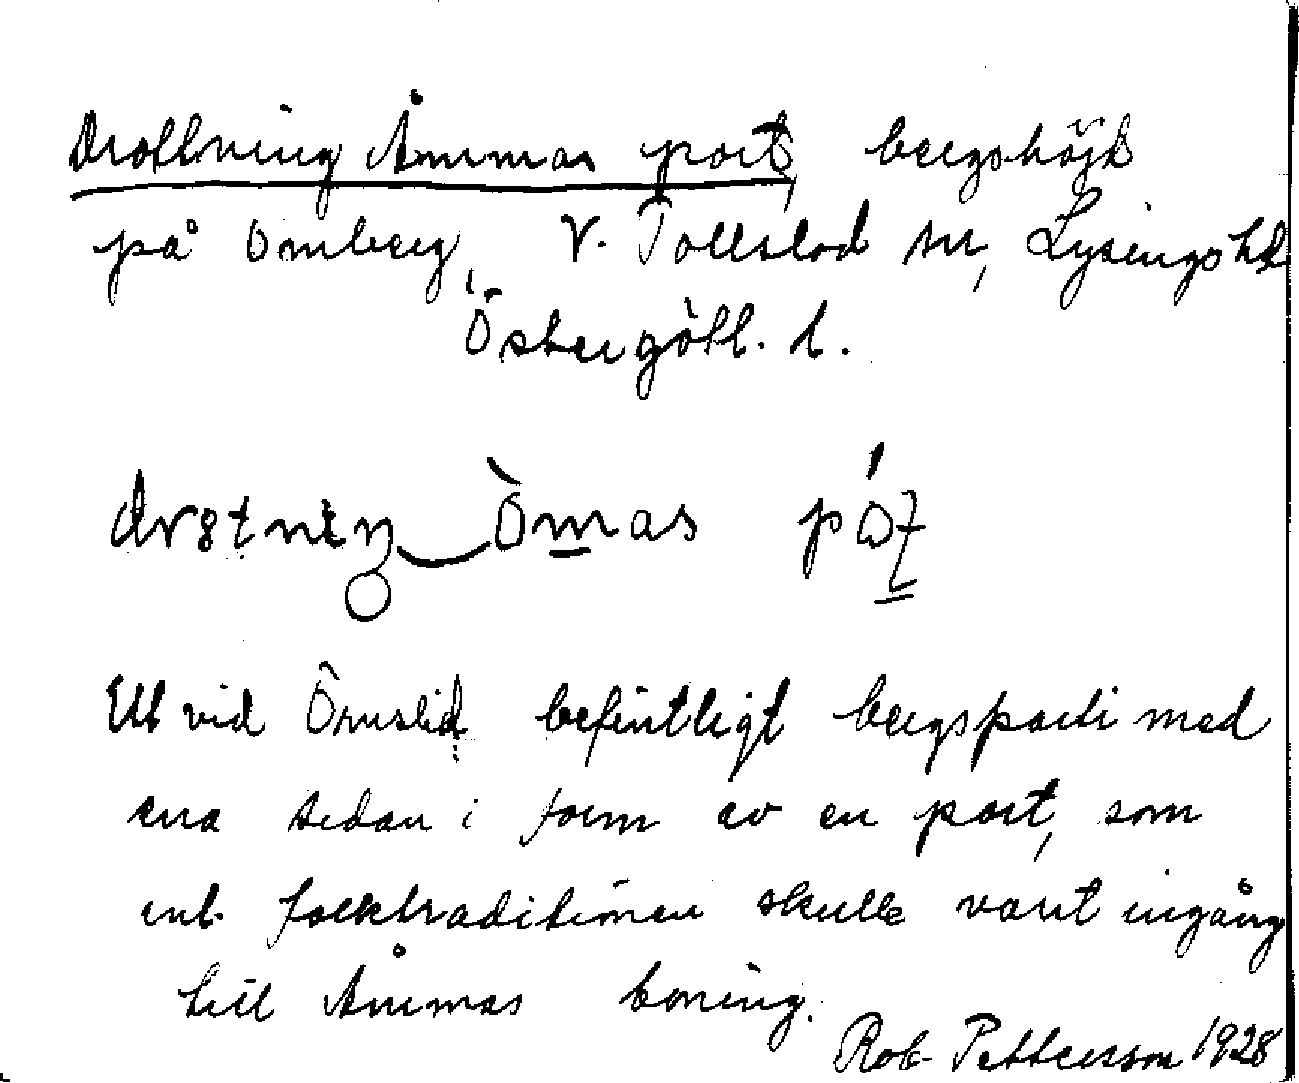 Drottning Åmmas port, bergshöjd
på Omberg, V. Tollstad sn, Lysings hd
Östergötl. l.
Òmas
Ett vid Ömslid befintligt bergsparti med
ena sidan i form av en port, som
enl. folktraditionen skulle varit ingång
till Åmmas boning.
Rob. Pettersson 1928